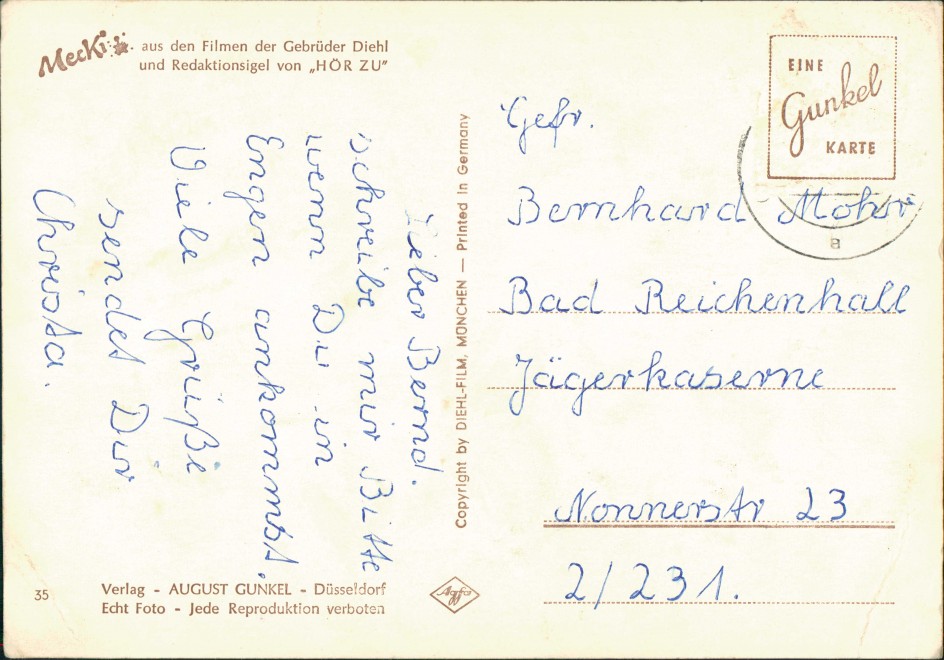 Mecki aus den Filmen der Gebrüder Diehl
und Redaktionsigel von „HÖR ZU"
Lieber Bernd.
schreibe mir Bitte
wenn Du in
Engen ankommst.
Viele Grüße
sendet Dir
Christa.
35
Verlag - AUGUST GUNKEL - Düsseldorf
Echt Foto - Jede Reproduktion verboten
Copyright by DIEHL-FILM, MÜNCHEN — Printed in Germany
Agfa
EINE
Gunkel
KARTE
a
Gefr.
Bernhard Mohr
Bad Reichenhall
Jägerkaserne
Nonnerstr 23
2/231.